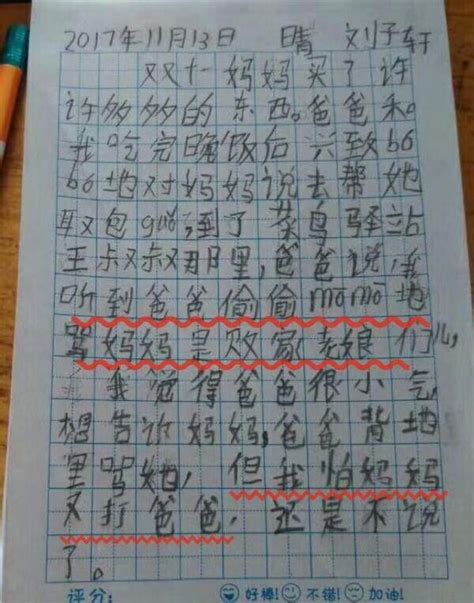 2017年11月13日 晴 刘子轩
双十一妈妈买了许
许多多的东西。爸爸和
我吃完晚饭后兴致bó
bó地对妈妈说去帮她
取包guǒ到了菜鸟驿站
王叔叔那里,爸爸说,我
听到爸爸偷偷mōmō地
骂妈妈是败家老娘们儿,
我觉得爸爸很小气,
想告诉妈妈,爸爸背地
里骂她,但我怕妈妈
又打爸爸,还是不说
了。
评分: 好棒! 不错! 加油!